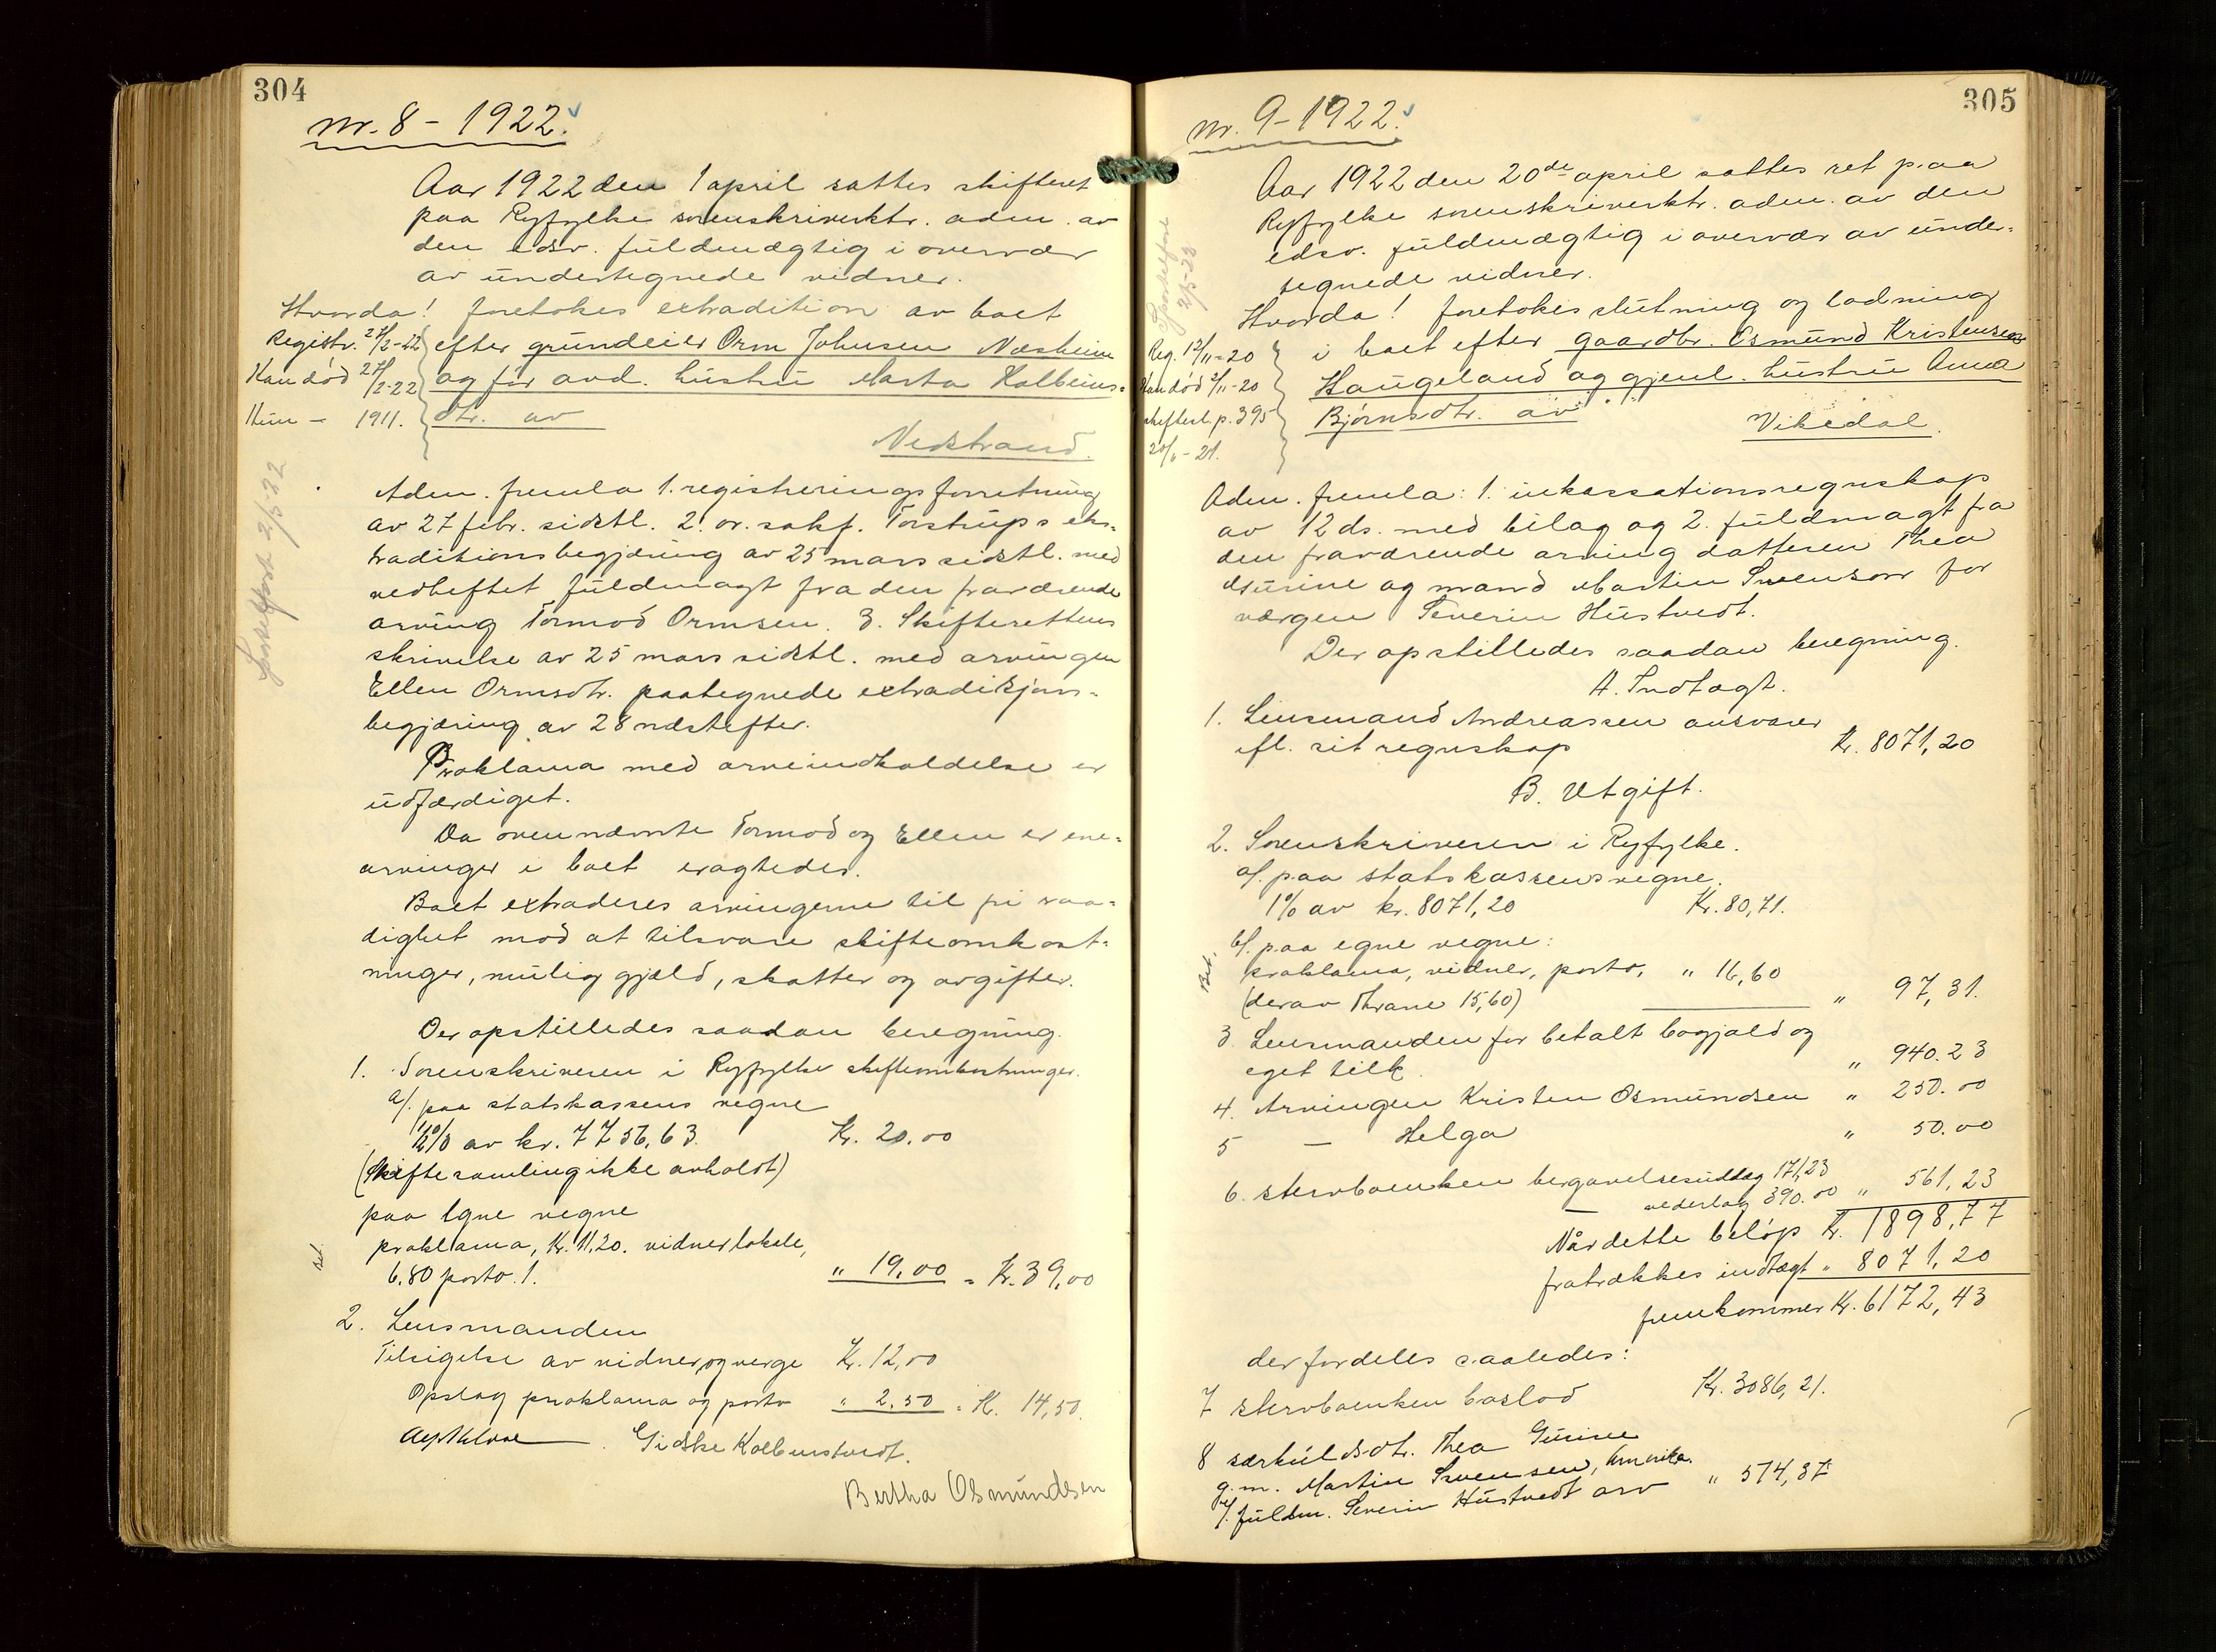 304
nr. 8 - 1922.
Aar 1922 den 1 april sattes skifteret
paa Ryfylke sorenskriverktr. adm. av
den edsv. fuldmægtig i overvær
av undertegnede vidner.
Hvorda! foretokes extradition av boet
Registr. 27/2-22 efter grundeier Orm Johnsen Næsheim
Han død 27/2-22 og før avd. hustru Marta Kolbeins-
Hun - 1911. dtr. av
Nedstrand.
Sportelført 2/5 22
Adm. fremla 1. registreringsforretning
av 27 febr. sidstl. 2. or. sakf. Torstrups eks-
traditionsbegjæring av 25 mars sidstl. med
vedheftet fuldmagt fra den fraværende
arving Tormod Ormsen. 3. Skifterettens
skrivelse av 25 mars sidstl. med arvingen
Ellen Ormsdtr. paategnede extradiksjons-
begjæring av 28 næstefter.
Proklama med arveindkaldelse er
udfærdiget.
Da ovennævnte Tormod og Ellen er ene-
arvinger i boet eragtedes.
Boet extraderes arvingerne til fri raa-
dighet mod at tilsvare skifteomkost-
ninger, mulig gjæld, skatter og avgifter.
Der opstilledes saadan beregning.
1. Sorenskriveren i Ryfylke skifteomkostninger.
a/. paa statskassens vegne
av kr. 7756,63. Kr. 20.00
(Skiftesamling ikke avholdt)
paa egne vegne
proklama, Kr. 11,20. vidner lokale,
6.80 porto. 1. " 19,00 = Kr. 39,00
2. Lensmanden
Tilsigelse av vidner og verge Kr. 12,00
Opslag proklama og porto " 2,50 = K. 14,50.
Gidske Kolbenstvedt.
Bertha Osmundsen
305
nr. 9-1922.
Aar 1922 den 20de april sattes ret paa
Ryfylke sorenskriverktr. adm. av den
edsv. fuldmægtig i overvær av under-
tegnede vidner.
Sportelført 2/5-22
Hvorda! foretokes slutning og lodning
Reg. 12/11-20 i boet efter gaardbr. Osmund Kristensen
Han død 2/11-20 Haugeland og gjenl. hustru Anna
skifterl. p. 395 Bjørnsdtr. av
20/6-21. Vikedal.
Adm. fremla: 1. inkassationsregnskap
av 12 ds. med bilag og 2. fuldmagt fra
den fraværende arving datteren Thea
Gurine og mand Martin Swenson for
værgen Severin Hustvedt.
Der opstilledes saadan beregning.
A. Indtægt.
1. Lensmand Andreassen ansvarer
efl. sit regnskap Kr. 8071,20
B. Utgift.
2. Sorenskriveren i Ryfylke.
a/. paa statskassens vegne.
1% av kr. 8071,20 Kr. 80,71.
b/. paa egne vegne:
proklama, vidner, porto, " 16,60
(derav Thrane 15,60) " 97,31.
3. Lensmanden for betalt bogjæld og
eget tilk. " 940.23
4. Arvingen Kristen Osmundsen " 250.00
5 — Helga " 50.00
6. Stervboenken begravelsesuttag 171,23
— vederlag 390.00 " 561,23
Når dette beløp Kr. 1898,77
fratrækkes indtægt " 8071,20
fremkommer Kr. 6172,43
der fordeles saaledes:
7 Stervboenken boslod Kr. 3086,21.
8 særkuldsdtr. Thea Gurine
g.m. Martin Swensen, Amerika.
v/. fuldm. Severin Hustvedt arv " 514,37